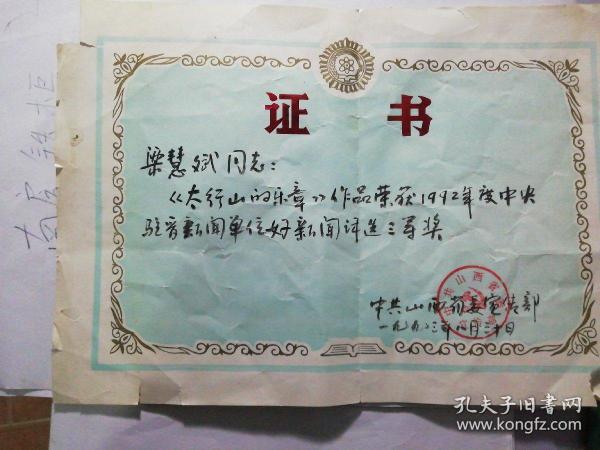 证书
梁慧斌同志：
《太行山的乐章》作品荣获1992年度中央
驻晋新闻单位好新闻评选三等奖
中共山西省委宣传部
一九九三年八月三十日
孔夫子旧书网
www.kongfz.com